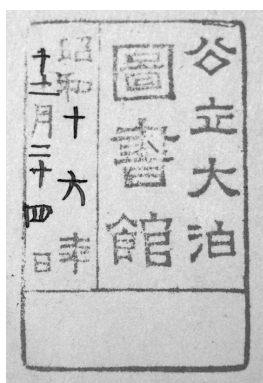 公立大泊
圖書館
昭和十六年
十二月二十四日